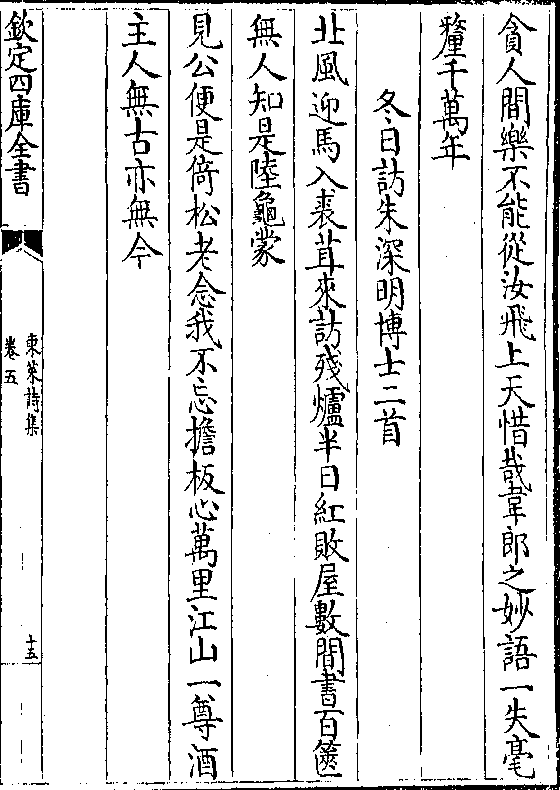 貪人間樂不能從汝飛上天惜哉韋郎之妙語一失毫
釐千萬年
冬日訪朱深明博士二首
北風迎馬入裘茸來訪殘爐半日紅敗屋數間書百篋
無人知是陸龜蒙
見公便是倚松老念我不忘擔板心萬里江山一尊酒
主人無古亦無今
欽定四庫全書
東萊詩集
卷五
十五